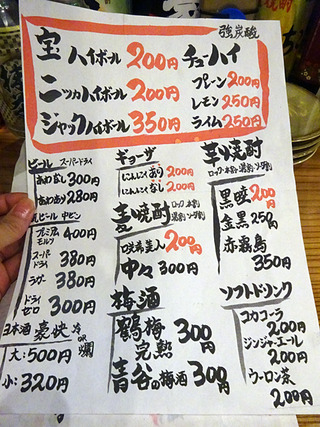 強炭酸
宝ハイボール 200円
ニッカハイボール 200円
ジャックハイボール 350円
チューハイ
プレーン 200円
レモン 250円
ライム 250円
ビール スーパードライ
あわなし 300円
あわあり 280円
瓶ビール 中モン
プレミアムモルツ 400円
スーパードライ 380円
ラガー 380円
ドライゼロ 300円
日本酒 豪快 冷 OR 燗
大:500円
小:320円
ギョーザ
にんにくあり 200円
にんにくなし 200円
麦焼酎
ロック・水割
湯割・ソーダ割
200円
中々 300円
梅酒
鶴梅完熟 300円
青谷の梅酒 300円
芋焼酎
ロック・水割・湯割・ソーダ割
黒暁 200円
金黒 250円
赤霧島 350円
ソフトドリンク
コカコーラ 200円
ジンジャーエール 200円
ウーロン茶 200円